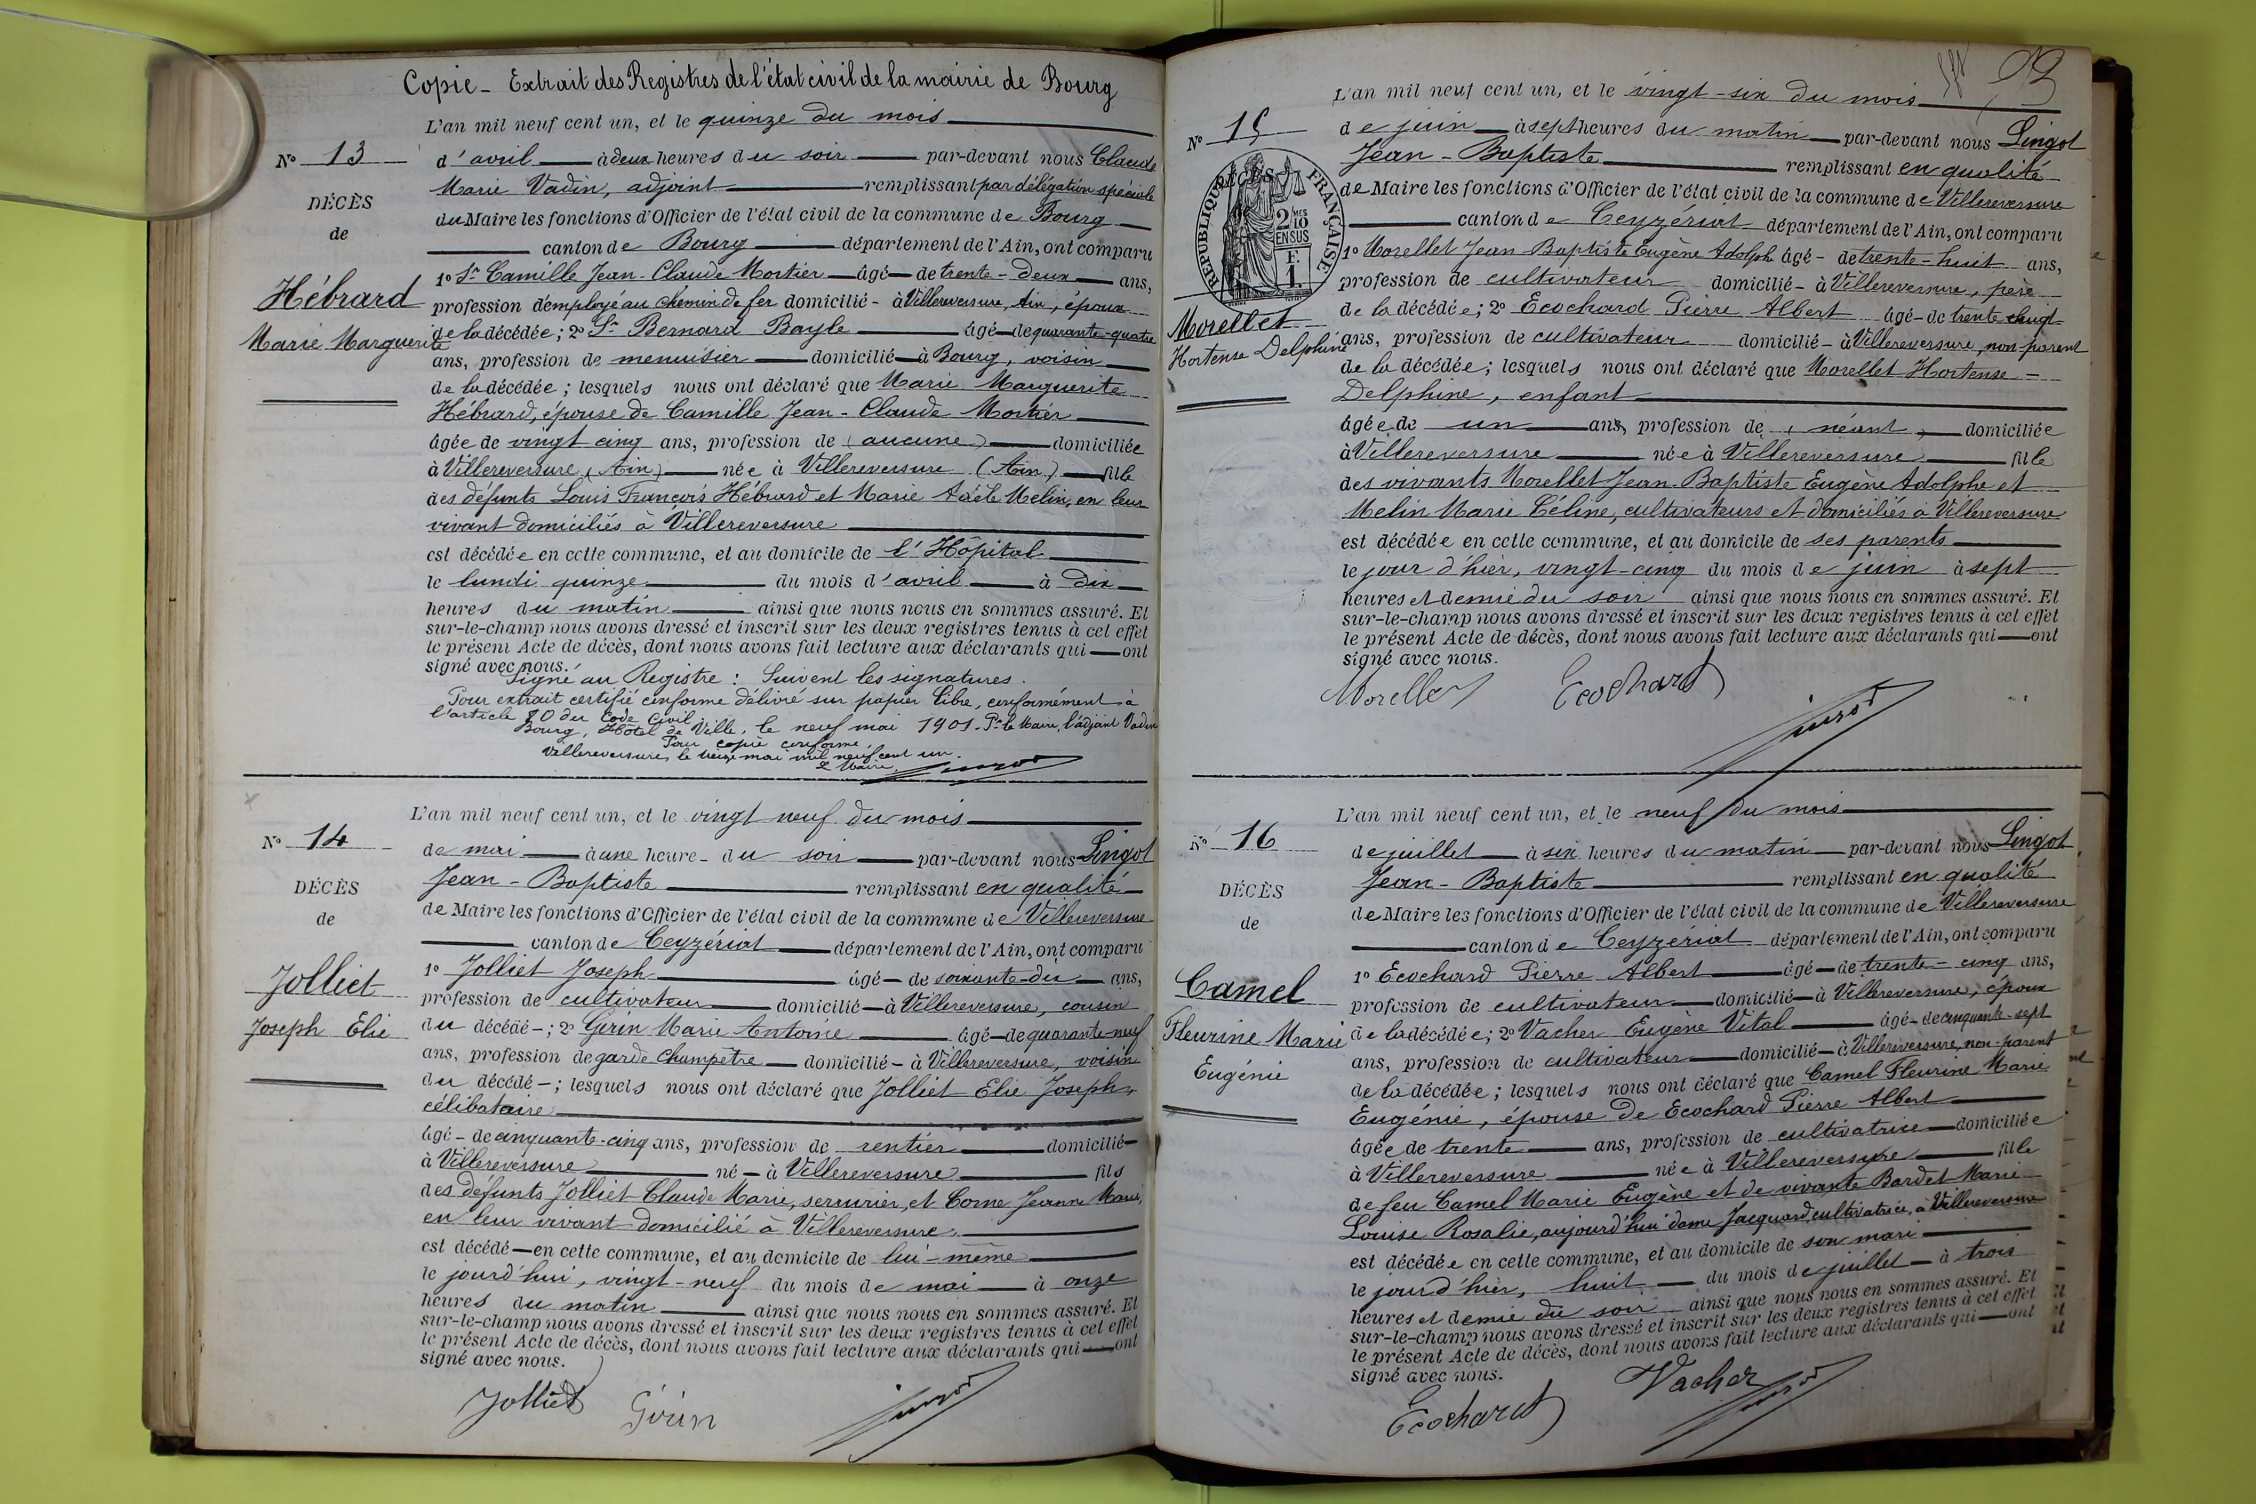 Copie - Extrait des Registres de l'état civil de la mairie de Bourg
L'an mil neuf cent un, et le quinze du mois
N° 13
d'avril à deux heures du soir par-devant nous Claude
Marie Vadin, adjoint remplissant par délégation spéciale
DÉCÈS
du Maire les fonctions d'Officier de l'état civil de la commune de Bourg
de
canton de Bourg département de l'Ain, ont comparu
1° Sr Camille Jean-Claude Mortier âgé de trente-deux ans,
Hébrard
profession d'employé au chemin de fer domicilié à Villereversure, Ain, époux
Marie Marguerite
de la décédée ; 2° Sr Bernard Bayle âgé de quarante-quatre
ans, profession de menuisier domicilié à Bourg, voisin
de la décédée ; lesquels nous ont déclaré que Marie Marguerite
Hébrard, épouse de Camille Jean-Claude Mortier
âgée de vingt cinq ans, profession de (aucune) domiciliée
à Villereversure (Ain) née à Villereversure (Ain) fille
des défunts Louis François Hébrard et Marie Adèle Melin, en leur
vivant domiciliés à Villereversure
est décédée en cette commune, et au domicile de l'Hôpital
le lundi quinze du mois d'avril à dix
heures du matin ainsi que nous nous en sommes assuré. Et
sur-le-champ nous avons dressé et inscrit sur les deux registres tenus à cet effet
le présent Acte de décès, dont nous avons fait lecture aux déclarants qui ont
signé avec nous.
Signé au Registre : Suivent les signatures.
Pour extrait certifié conforme délivré sur papier libre, conformément à
l'article 80 du Code Civil.
Bourg, Hôtel de Ville, le neuf mai 1901. Pr le Maire, l'adjoint Vadin
Pour copie conforme.
Villereversure, le treize mai mil neuf cent un.
Le Maire
L'an mil neuf cent un, et le vingt neuf du mois
N° 14
de mai à une heure du soir par-devant nous Lingot
Jean-Baptiste remplissant en qualité
DÉCÈS
de Maire les fonctions d'Officier de l'état civil de la commune de Villereversure
de
canton de Ceyzériat département de l'Ain, ont comparu
Jolliet
1° Jolliet Joseph âgé de soixante-dix ans,
profession de cultivateur domicilié à Villereversure, cousin
Joseph Elie
du décédé ; 2° Gérin Marie Antoine âgé de quarante-neuf
ans, profession de garde champêtre domicilié à Villereversure, voisin
du décédé ; lesquels nous ont déclaré que Jolliet Elie Joseph,
célibataire
âgé de cinquante-cinq ans, profession de rentier domicilié
à Villereversure né à Villereversure fils
des défunts Jolliet Claude Marie, serrurier, et Corne Jeanne Marie,
en leur vivant domicilié à Villereversure
est décédé en cette commune, et au domicile de lui-même
le jourd'hui, vingt-neuf du mois de mai à onze
heures du matin ainsi que nous nous en sommes assuré. Et
sur-le-champ nous avons dressé et inscrit sur les deux registres tenus à cet effet
le présent Acte de décès, dont nous avons fait lecture aux déclarants qui ont
signé avec nous.
Jolliet Gérin
93
L'an mil neuf cent un, et le vingt-six du mois
N° 15
de juin à sept heures du matin par-devant nous Lingot
Jean-Baptiste remplissant en qualité
RÉPUBLIQUE FRANÇAISE
2 MES 10 EN SUS
F. 1.
de Maire les fonctions d'Officier de l'état civil de la commune de Villereversure
canton de Ceyzériat département de l'Ain, ont comparu
1° Morellet Jean Baptiste Eugène Adolphe âgé de trente-huit ans,
profession de cultivateur domicilié à Villereversure, père
Morellet
de la décédée ; 2° Ecochard Pierre Albert âgé de trente cinq
Hortense Delphine
ans, profession de cultivateur domicilié à Villereversure, non-parent
de la décédée ; lesquels nous ont déclaré que Morellet Hortense
Delphine, enfant
âgée de un ans, profession de (néant) domiciliée
à Villereversure née à Villereversure fille
des vivants Morellet Jean-Baptiste Eugène Adolphe et
Melin Marie Céline, cultivateurs et domiciliés à Villereversure
est décédée en cette commune, et au domicile de ses parents
le jour d'hier, vingt-cinq du mois de juin à sept
heures et demie du soir ainsi que nous nous en sommes assuré. Et
sur-le-champ nous avons dressé et inscrit sur les deux registres tenus à cet effet
le présent Acte de décès, dont nous avons fait lecture aux déclarants qui ont
signé avec nous.
Morellet Ecochard
L'an mil neuf cent un, et le neuf du mois
N° 16
de juillet à six heures du matin par-devant nous Lingot
Jean-Baptiste remplissant en qualité
DÉCÈS
de Maire les fonctions d'Officier de l'état civil de la commune de Villereversure
de
canton de Ceyzériat département de l'Ain, ont comparu
Camel
1° Ecochard Pierre Albert âgé de trente-cinq ans,
profession de cultivateur domicilié à Villereversure, époux
Fleurine Marie
de la décédée ; 2° Vacher Eugène Vital âgé de cinquante-sept
Eugénie
ans, profession de cultivateur domicilié à Villereversure, non-parent
de la décédée ; lesquels nous ont déclaré que Camel Fleurine Marie
Eugénie, épouse de Ecochard Pierre Albert
âgée de trente ans, profession de cultivatrice domiciliée
à Villereversure née à Villereversure fille
de feu Camel Marie Eugène et de vivante Bardet Marie
Louise Rosalie, aujourd'hui dame Jacquard, cultivatrice, à Villereversure
est décédée en cette commune, et au domicile de son mari
le jour d'hier, huit du mois de juillet à trois
heures et demie du soir ainsi que nous nous en sommes assuré. Et
sur-le-champ nous avons dressé et inscrit sur les deux registres tenus à cet effet
le présent Acte de décès, dont nous avons fait lecture aux déclarants qui ont
signé avec nous.
Ecochard Vacher